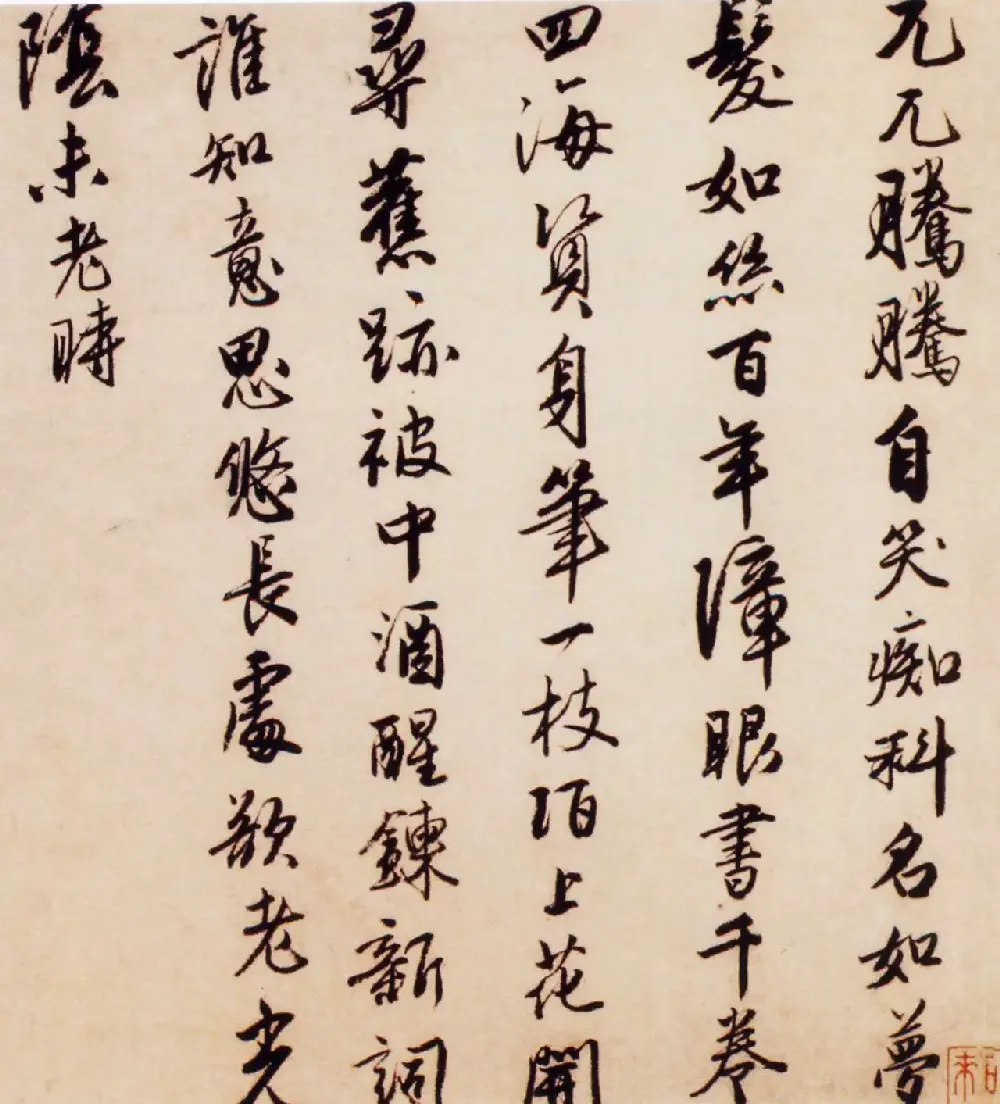 兀兀騰騰自笑痴科名如夢
髮如絲百年障眼書千卷
四海資身筆一枝陌上花開
尋舊跡被中酒醒鍊新詞
誰知意思悠長處欲老光
陰未老時